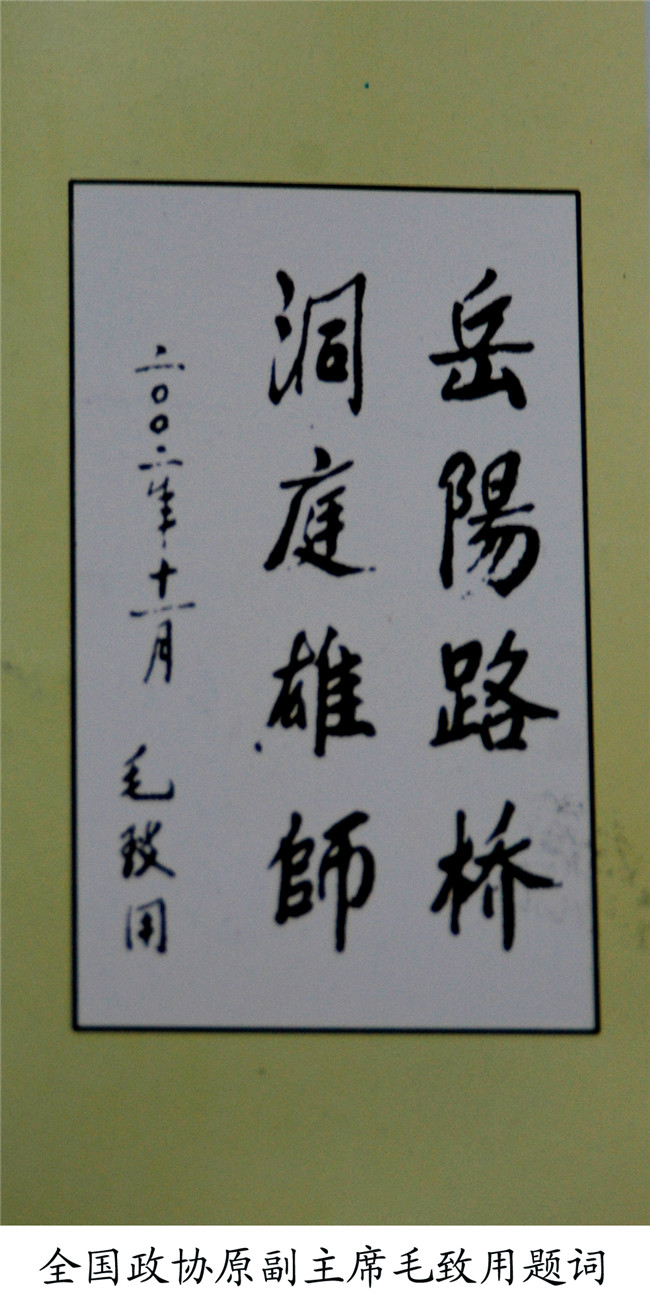 岳陽路桥
洞庭雄師
二〇〇二年十一月 毛致用
全国政协原副主席毛致用题词